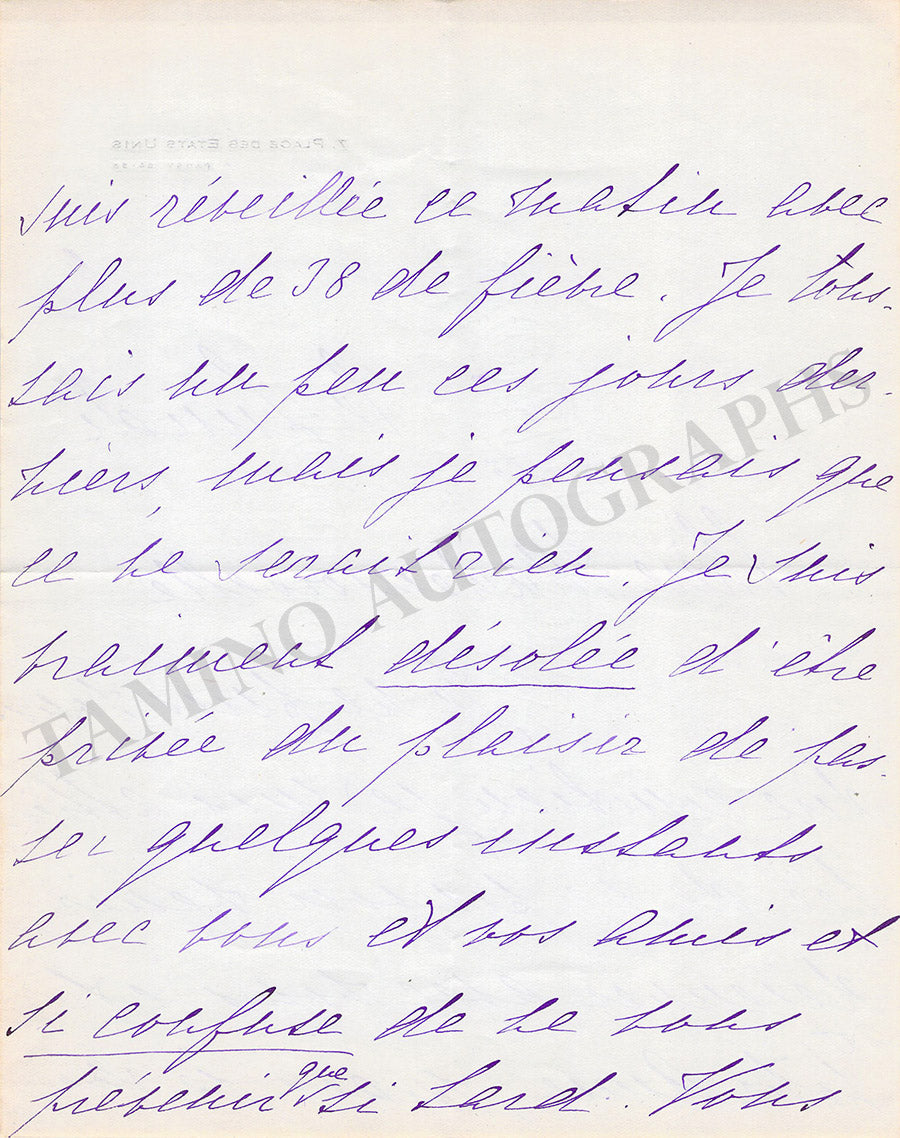 7. PLACE DES ETATS UNIS
suis réveillée ce matin avec
plus de 38 de fièvre. Je tous-
sais un peu ces jours der-
niers, mais je pensais que
ce ne serait rien. Je suis
vraiment désolée d'être
privée du plaisir de pas-
ser quelques instants
avec vous et vos amis et
si confuse de ne vous
prévenir que si tard. Vous
TAMINO AUTOGRAPHS